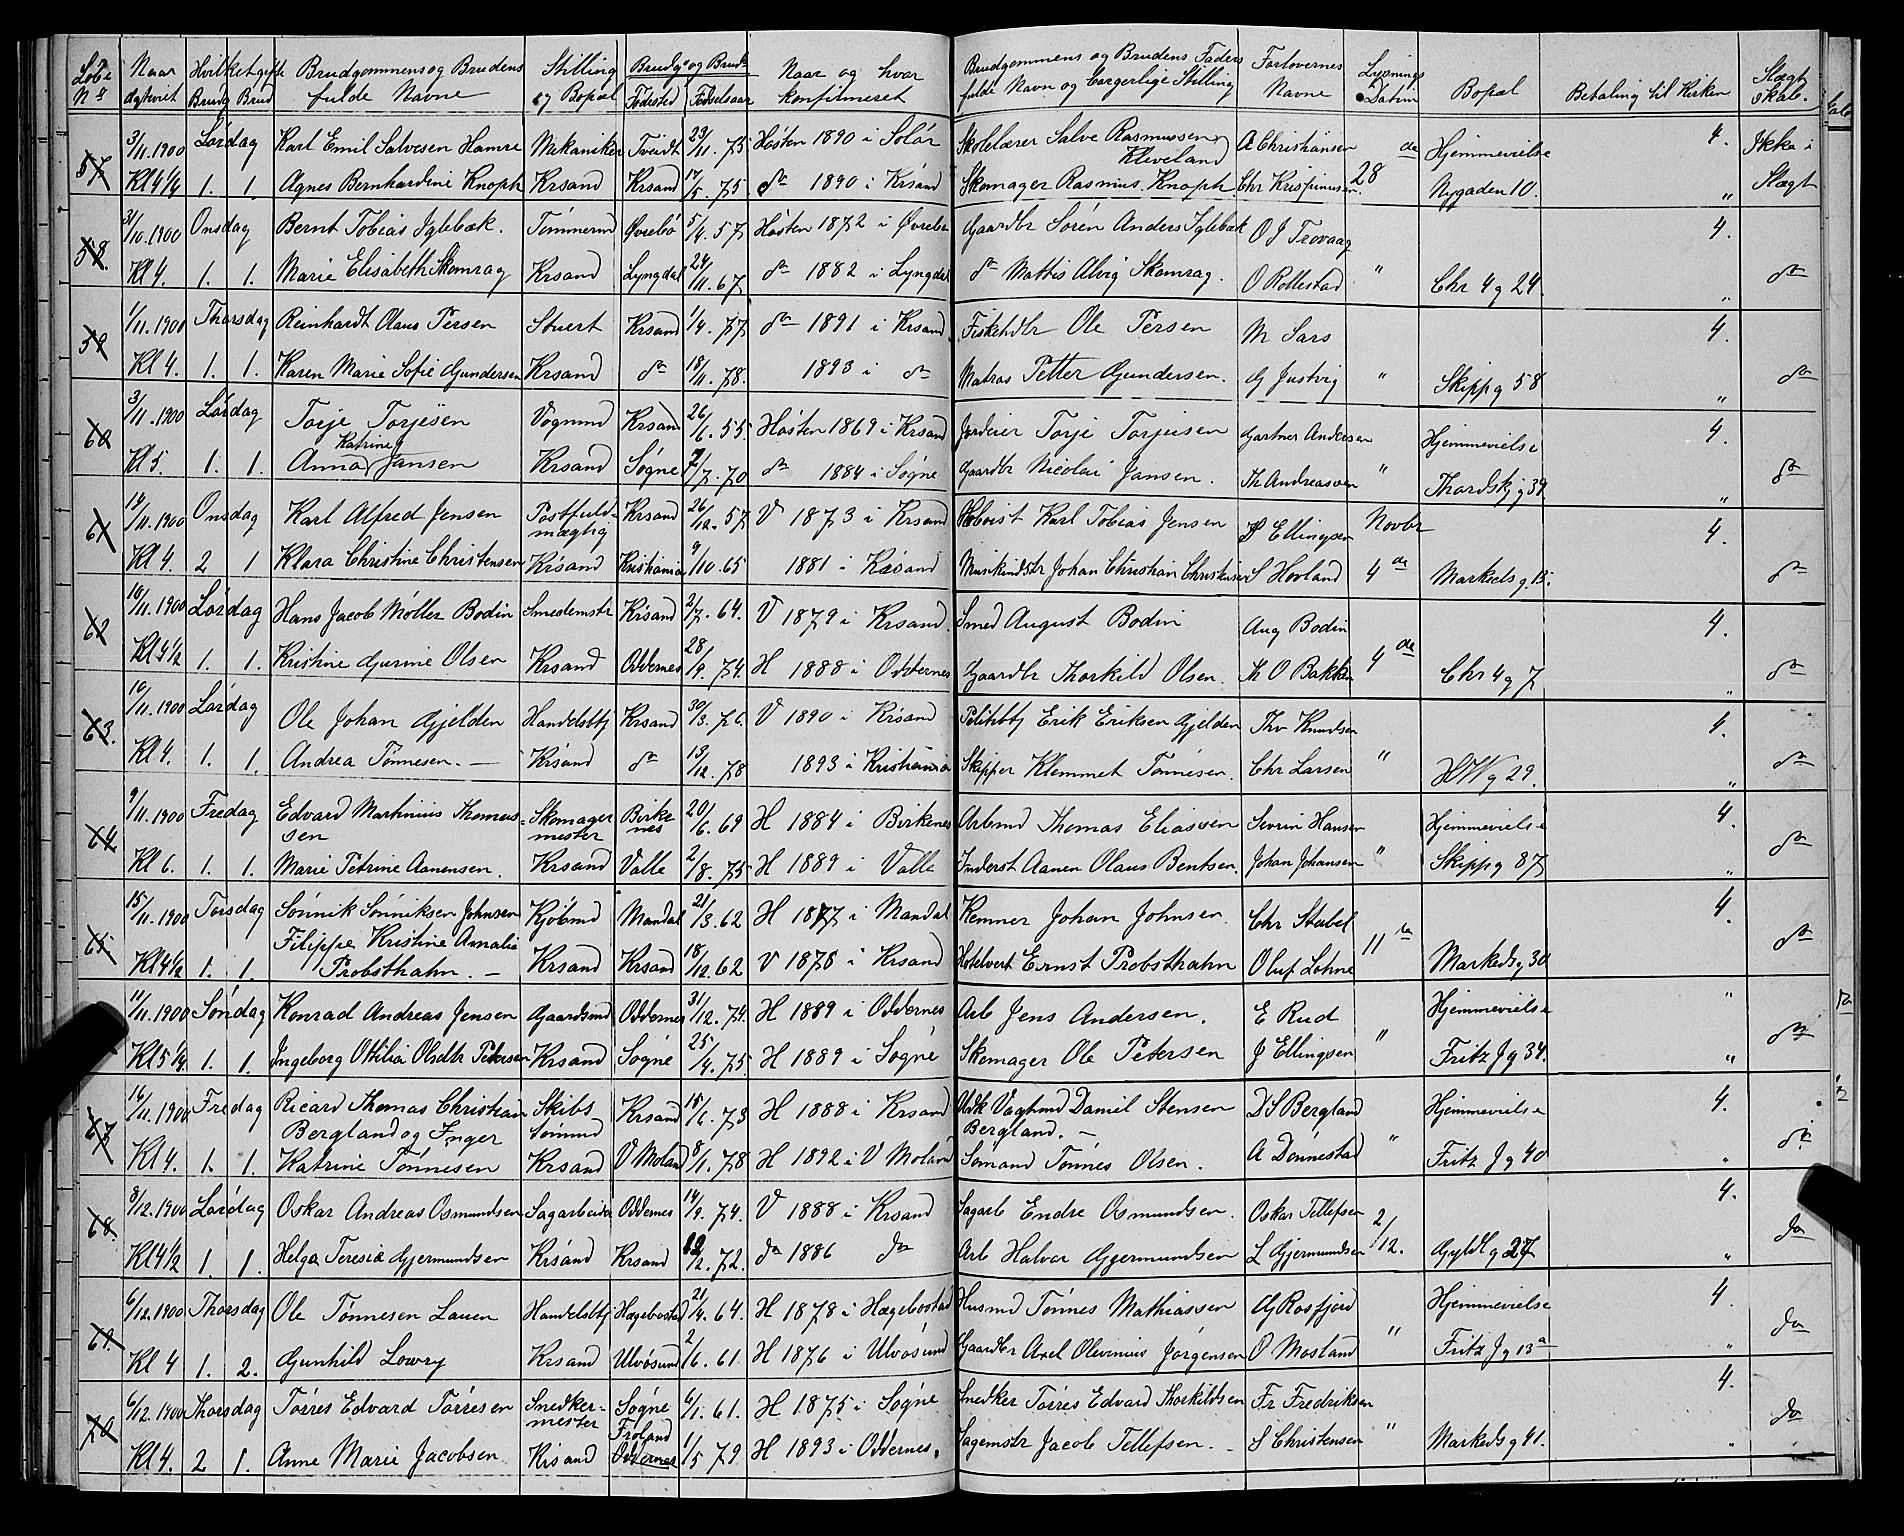 Löbe Naar Hvilket gifte Brudgommens og Brudens Stilling Brudg og Brud Naar og hvor Brudgommens og Brudens Faders Forlovernes Lysnings Bopæl Betaling til Kirken Slægt
N° egteviet Brudg Brud fulde Navne og Bopæl Fødested Fødselsaar konfirmeret fulde Navn og borgerlige Stilling Navne Datum skab.
57 3/11.1900 Lørdag Karl Emil Salvesen Hamre Mekaniker Tveidt 23/11.75 Hösten 1890 i Solör Skolelærer Salve Rasmussen Kleveland A Christiansen de Hjemmevielse 4. Ikke i
Kl 4¼ 1. 1. Agnes Bernhardine Knoph Krsand Krsand 17/5.75 do 1890 i Krsand Skomager Rasmus Knoph Chr Krispinusen 28 Nygaden 10. " Slægt
58. 31/10.1900 Onsdag Bernt Tobias Iglebæk. Tömmermd Øvrebö 5/4.57 Hösten 1872 i Øvrebö Gaardbr Sören Anders Iglebæk O J Trovaag 4.
Kl 4. 1. 1. Marie Elisabeth Skomrag Krsand Lyngdal 24/11.67 do 1882 i Lyngdal do Mattis Alvig Skomrag. O Rollestad " Chr 4 g 24. " do
59 1/11.1900 Thorsdag Reinhardt Olaus Persen Stuert Krsand 1/4.77 do 1891 i Krsand Fiskehdlr Ole Persen M Sars 4.
Kl 4. 1. 1. Karen Marie Sofie Gundersen Krsand do 18/11.78. 1893 i do Matros Petter Gundersen. G Justvig " Skippg 58 " do
60 3/11.1900 Lørdag Torje Torjesen Vognmd Krsand 26/6.55. Hösten 1869 i Krsand Jordeier Torje Torjeisen Gartner Andersen Hjemmevielse 4.
Kl 5. 1. 1. Anna Katrine Jansen Krsand Søgne 7/7.70 do 1884 i Søgne Gaardbr Nicolai Jansen. Th Andreassen " Thordskj g 39 " do
61 14/11.1900 Onsdag Karl Alfred Jensen Postfuldmægtig Krsand 26/12.57 V 1873 i Krsand Karl Tobias Jensen Ellingsen Novbr 4.
Kl 4. 2 1 Klara Christine Christensen Krsand Kristiania 9/10.65 1881 i Krsand Musikindstr Johan Christian Christensen S Hovland 4 de Markedsg.15. do
62 10/11.1900 Lørdag Hans Jacob Møller Bodin Smedemstr Krsand 2/7.64. V 1879 i Krsand. Smed August Bodin Aug Bodin 4.
Kl 4½ 1. 1. Kristine Gurine Olsen Krsand Oddernes 28/9.74. H 1888 i Oddernes Gaardbr Thorkild Olsen. Th O Bakken 4 de Chr 4 g 7 " do
63. 10/11.1900 Lørdag Ole Johan Gjelden Handelsbtj Krsand 30/3.76. V 1890 i Krsand Politibtj Erik Eriksen Gjelden Thv Knudsen 4.
Kl 4. 1. 1. Andrea Tønnesen. — Krsand do 13/12.78 1893 i Kristiania Skipper Klemmet Tönnesen. Chr Larsen " HWg 29. " do
64 9/11.1900 Fredag Edvard Martinius Thomassen Skomagermester Birkenes 20/6.69 H 1884 i Birkenes Arbmd Thomas Eliassen Severin Hansen Hjemmevielse 4.
Kl 6. 1. 1. Marie Petrine Aanensen. Krsand Valle 2/8.75 H 1889 i Valle Inderst Aanen Olaus Bentsen. Johan Johansen " Skippg 87 " do
65 15/11.1900 Torsdag Sönnik Sönniksen Johnsen Kjöbmd Mandal 21/3.62 H 1877 i Mandal Kemner Johan Johnsen. Chr Stubel 4.
Kl 4½ 1. 1. Filippa Kristine Amalie Probsthahn. — Krsand Krsand 18/12.62 V 1878 i Krsand Hotelvert Ernst Probsthahn Oluf Lohne 11 te Markedsg 30 do
11/11.1900 Söndag Konrad Andreas Jensen Gaardsmd Oddernes 31/12.74. H 1889 i Oddernes Arb Jens Andersen. E Rud Hjemmevielse "
Kl 5¼ 1. 1. Ingeborg Otilia Olsdtr Petersen Krsand Søgne 25/4.75. H 1889 i Søgne Skomager Ole Petersen J Ellingsen " Fritz J g 34. " do
67 16/11.1900 Fredag Ricard Thomas Christian Bergland og Inger Skibs Sømmd Krsand 15/6.73 H 1888 i Krsand Vagtmd Daniel Stensen Bergland. — D S Bergland Hjemmevielse 4.
Kl 4. 1. 1. Katrine Tønnesen Krsand V Moland 8/1.78 H 1892 i V Moland Sömand Tönnes Olsen. A Dönnestad " Fritz J g 40 " do
68 8/12.1900 Lørdag Oskar Andreas Osmundsen Sagarbeider Oddernes 14/9.74. V 1888 i Krsand Sagarb Endre Osmundsen. Oskar Tellefsen 2/12. 4.
Kl 4½ 1. 1. Helga Teresia Gjermundsen Krsand Krsand 12/2.72. do 1886 do Arb Halvor Gjermundsen L Gjermundsen Gyldlg 27 " do
69. 6/12.1900 Thorsdag Ole Tønnesen Lauen Handelsbtj Hægebostad 21/4.64. H 1878 i Hægebostad Husmd Tönnes Mathiassen G Rosfjord Hjemmevielse 4.
Kl 4 1. 2. Gunhild Lowry Krsand Ulvøsund 2/6.61. H 1876 i Ulvøsund Gaardbr Axel Olivinius Jørgensen O Mosland " Fritz J g 13 a " do
70 6/12.1900 Thorsdag Törres Edvard Törresen Snedkermester Søgne 6/1.61. H 1875 i Søgne Snedker Törres Edvard Thorkildsen Fr Fredriksen 4.
Kl 4. 2 1. Anne Marie Jacobsen Krsand Froland Oddernes 1/5 79. H 1893 i Oddernes. Sagemstr Jacob Tellefsen. - S Christensen " Markedsg 41. " do